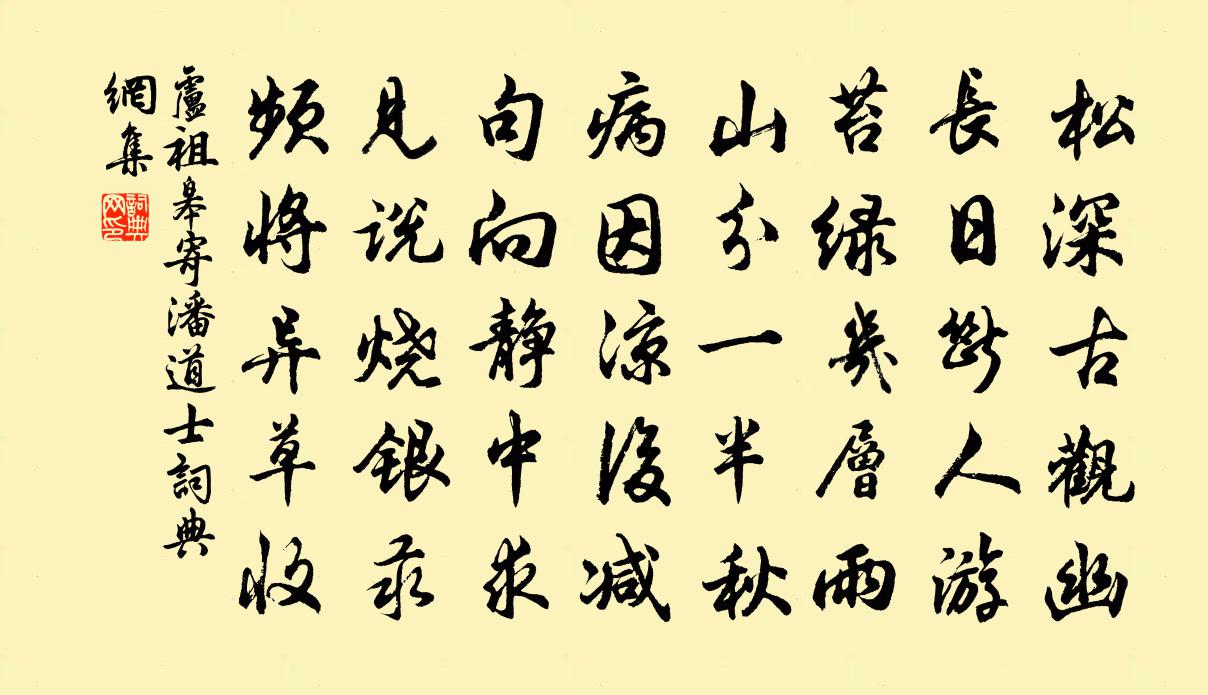 松深古觀幽
長日斷人游
苔綠幾層雨
山分一半秋
病因涼後减
句向靜中求
見說燒銀汞
頻將异草收
盧祖皋寄潘道士詞典
網集
詞典
网印